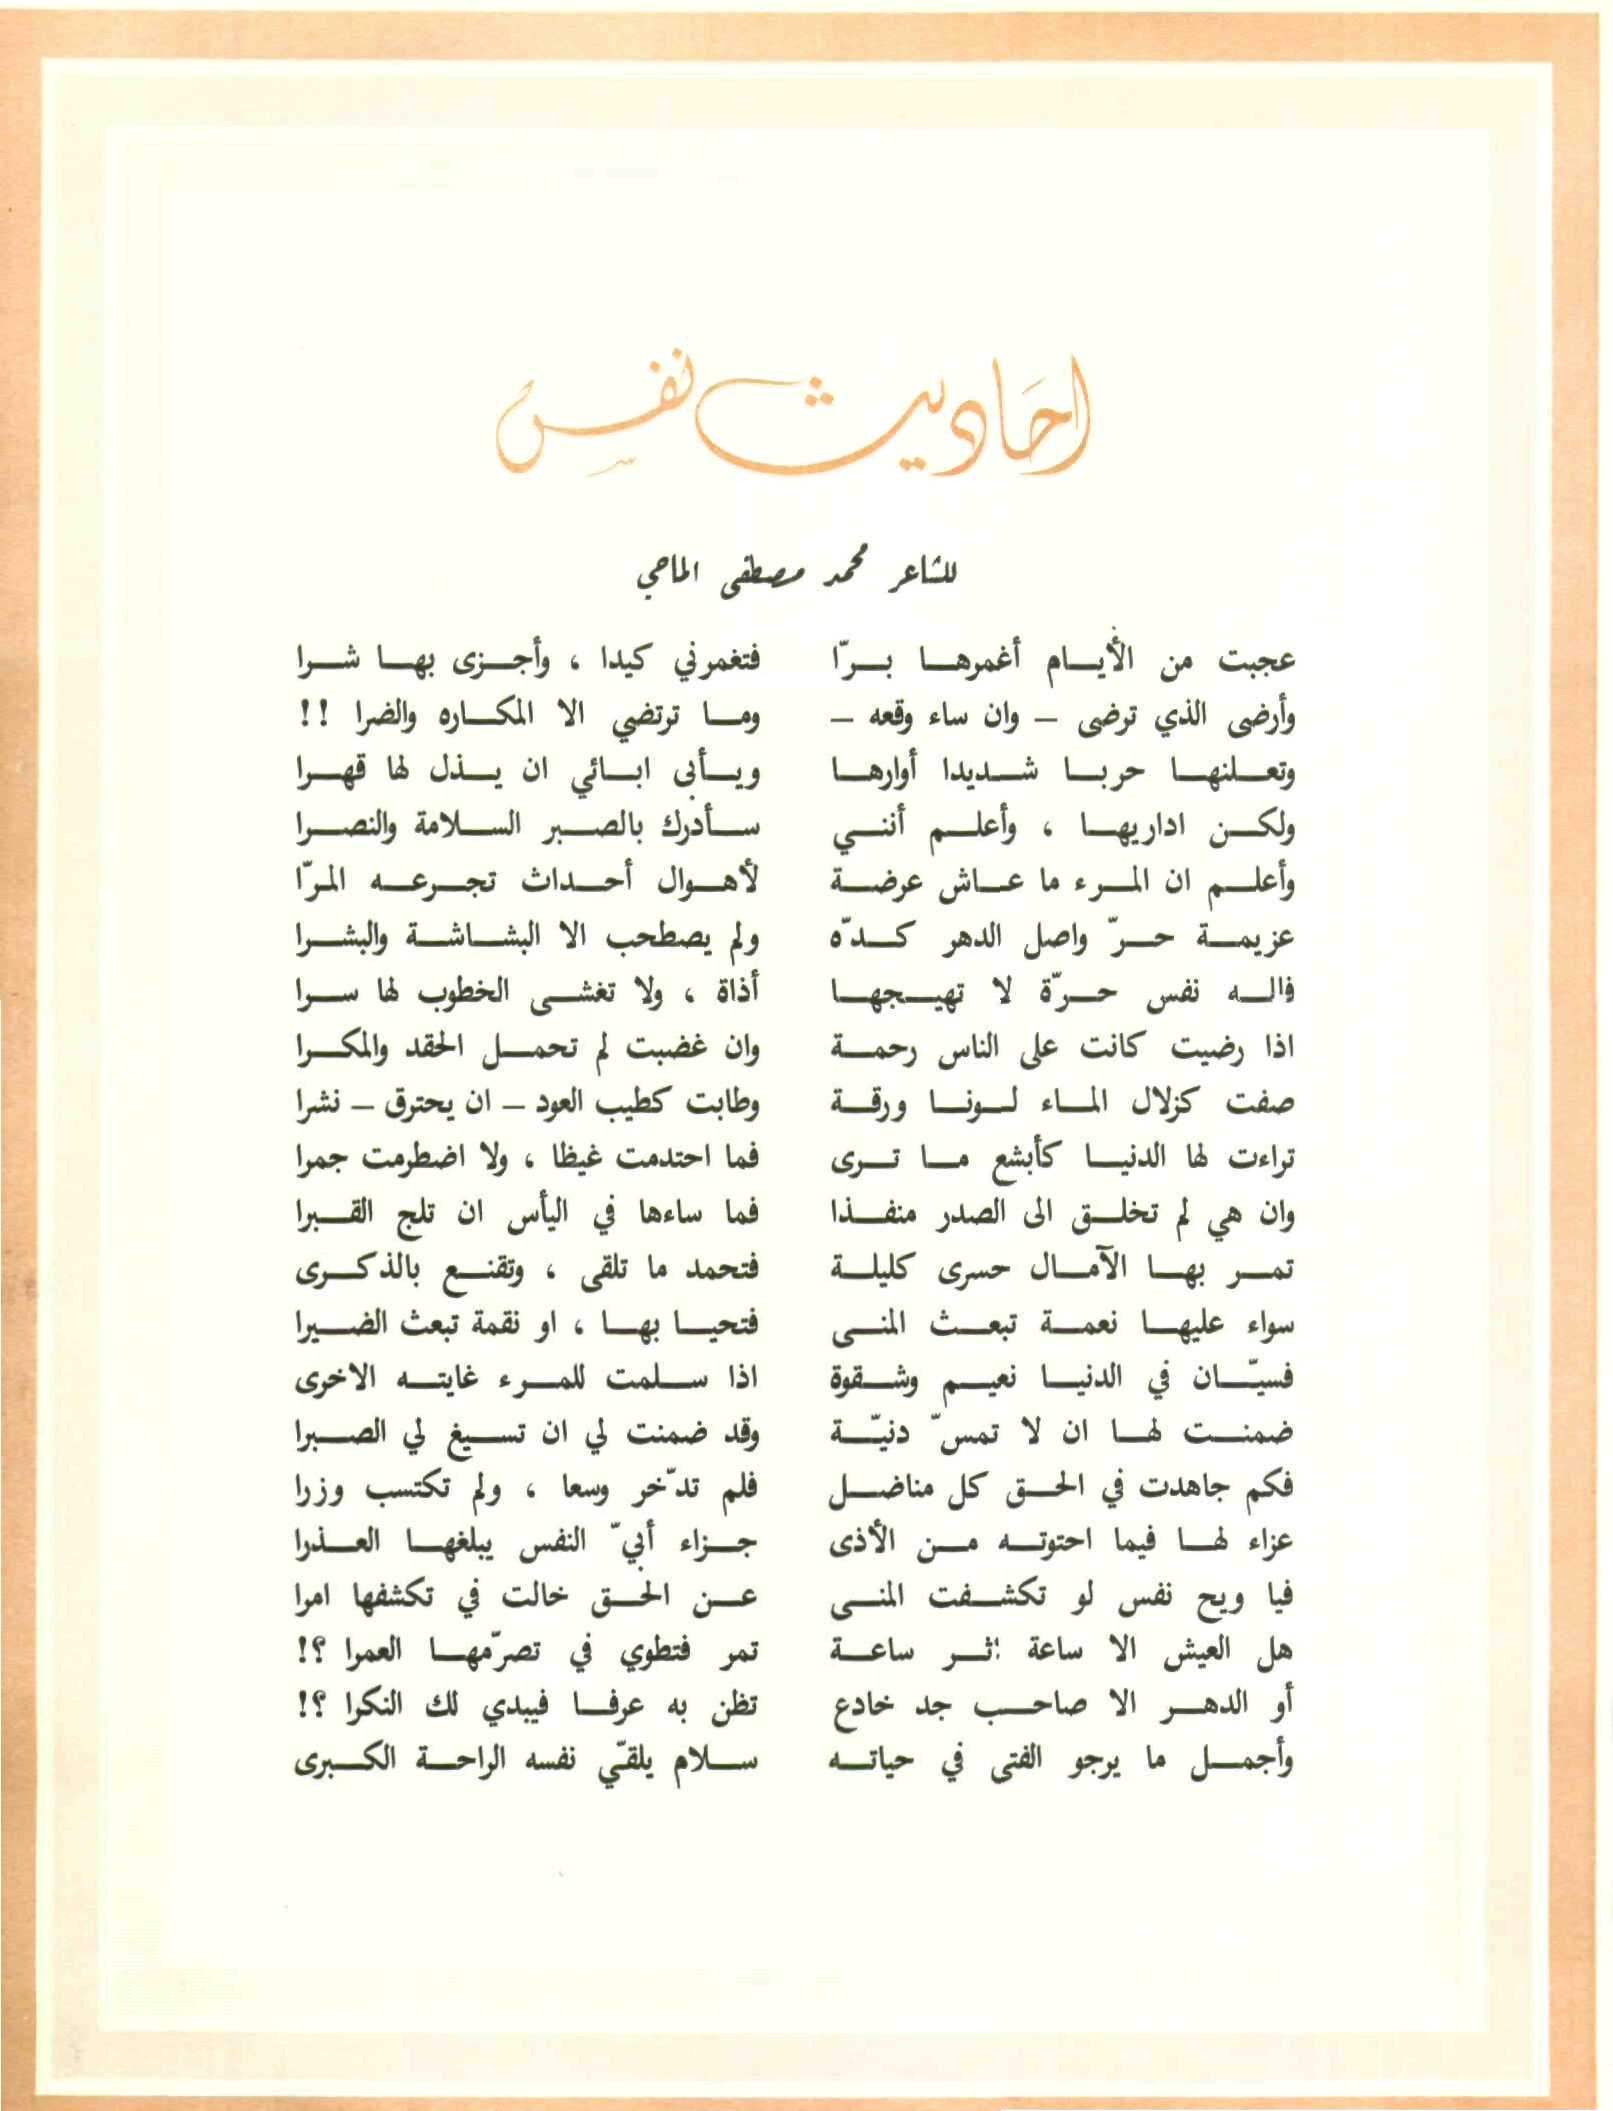 احاديث نفس
للشاعر محمد مصطفى الماحي
عجبت من الأيام أغمرها برّا فتغمرني كيدا ، وأجزى بها شرا
وأرضى الذي ترضى – وان ساء وقعه – وما ترتضي الا المكاره والضرا !!
وتعلنها حربا شديدا أوارها ويأبى ابائي ان يذل لها قهرا
ولكن اداريها ، وأعلم أنني سأدرك بالصبر السلامة والنصرا
وأعلم ان المرء ما عاش عرضة لأهوال أحداث تجرعه المرّا
عزيمة حرّ واصل الدهر كدّه ولم يصطحب الا البشاشة والبشرا
فالله نفس حرّة لا تهيجها أذاة ، ولا تغشى الخطوب لها سرا
اذا رضيت كانت على الناس رحمة وان غضبت لم تحمل الحقد والمكرا
صفت كزلال الماء لونا ورقة وطابت كطيب العود – ان يحترق – نشرا
تراءت لها الدنيا كأبشع ما ترى فما احتدمت غيظا ، ولا اضطرمت جمرا
وان هي لم تخلق الى الصدر منفذا فما ساءها في اليأس ان تلج القبرا
تمر بها الآمال حسرى كليلة فتحمد ما تلقى ، وتقنع بالذكرى
سواء عليها نعمة تبعث المنى فتحيا بها ، او نقمة تبعث الضيرا
فسيّان في الدنيا نعيم وشقوة اذا سلمت للمرء غايته الاخرى
ضمنت لها ان لا تمسّ دنيّة وقد ضمنت لي ان تسيغ لي الصبرا
فكم جاهدت في الحق كل مناضل فلم تدّخر وسعا ، ولم تكتسب وزرا
عزاء لها فيما احتوته من الأذى جزاء أبيّ النفس يبلغها العذرا
فيا ويح نفس لو تكشفت المنى عن الحق خالت في تكشفها امرا
هل العيش الا ساعة إثر ساعة تمر فتطوي في تصرّمها العمرا ؟!
أو الدهر الا صاحب جد خادع تظن به عرفا فيبدي لك النكرا ؟!
وأجمل ما يرجو الفتى في حياته سلام يلقّي نفسه الراحة الكبرى